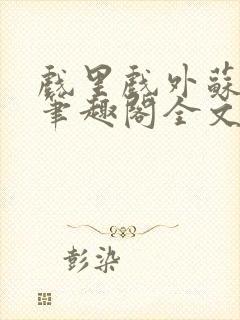 戲里戲外蘇
筆趣閣全文
彭染